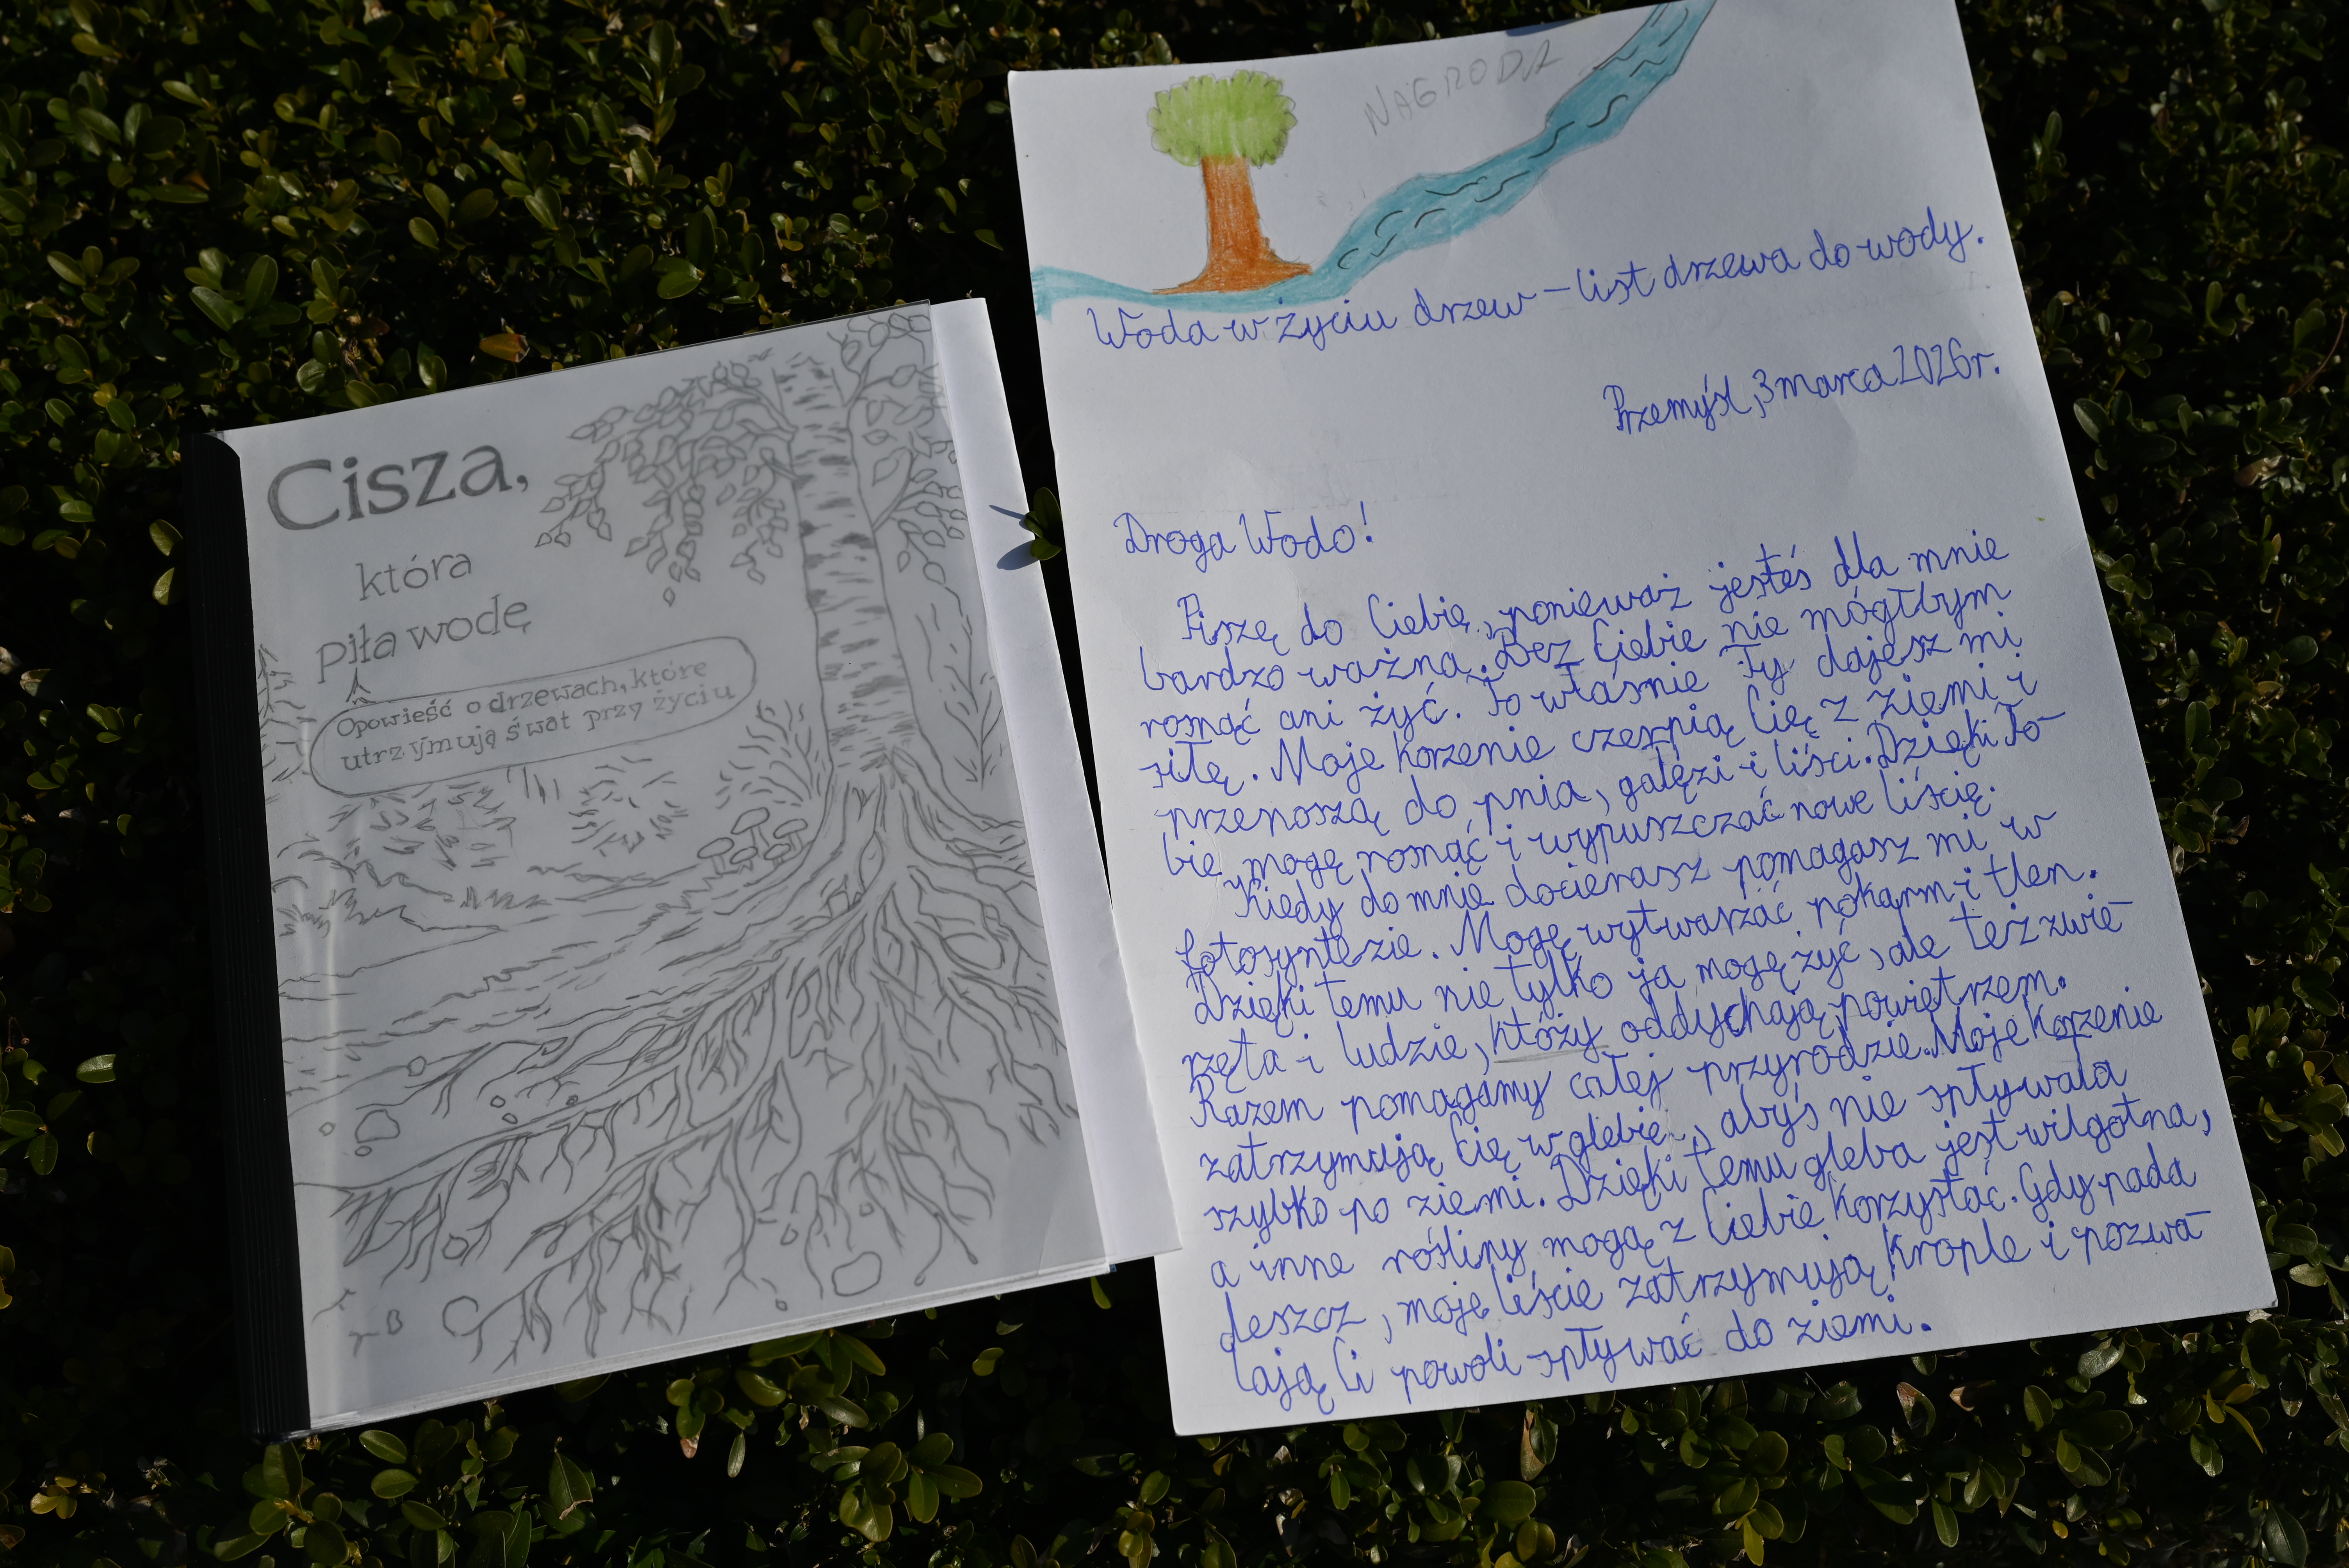 Cisza,
która
piła wodę
Opowieść o drzewach, które
utrzymują świat przy życiu
NAGRODA
Woda w życiu drzew – list drzewa do wody.
Przemyśl, 3 marca 2026r.
Droga Wodo!
Piszę do Ciebie, ponieważ jesteś dla mnie
bardzo ważna. Bez Ciebie nie mógłbym
rosnąć ani żyć. To właśnie Ty dajesz mi
siłę. Moje korzenie czerpią Cię z ziemi i
przenoszą do pnia, gałęzi i liści. Dzięki To-
bie mogę rosnąć i wypuszczać nowe liście.
Kiedy do mnie docierasz pomagasz mi w
fotosyntezie. Mogę wytwarzać pokarm i tlen.
Dzięki temu nie tylko ja mogę żyć, ale też zwie-
rzęta i ludzie, któży oddychają powietrzem.
Razem pomagamy całej przyrodzie. Moje korzenie
zatrzymują Cię w glebie, abyś nie spływała
szybko po ziemi. Dzięki temu gleba jest wilgotna,
a inne rośliny mogą z Ciebie korzystać. Gdy pada
deszcz, moje liście zatrzymują krople i pozwa-
lają Ci powoli spływać do ziemi.